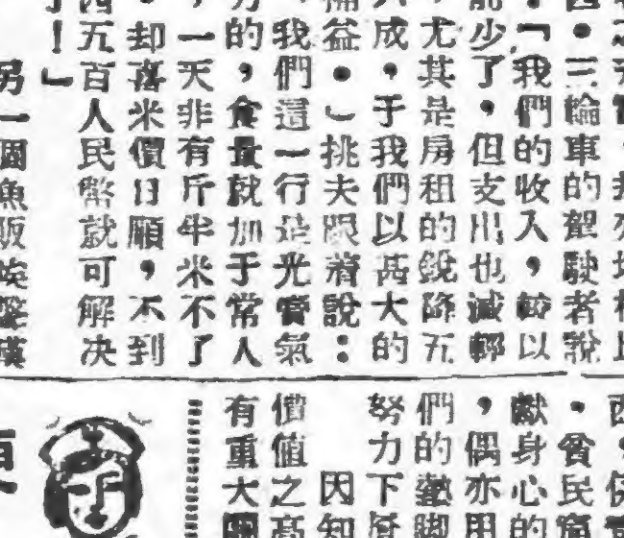 三輪車的駕駛者說
：「我們的收入，較以
前少了，但支出也減輕
，尤其是房租的銳降五
成，于我們以甚大的
補益。」挑夫跟着說：
我們這一行是光賣氣
力的，食量就加于常人
，一天非有斤半米不了
，却喜米價日順，不到
四五百人民幣就可解决
了！」
另一個魚販
西，
。貧民窟
獻身心的
，偶亦用
們的蹩脚
努力下
因知
價值之高
有重大關